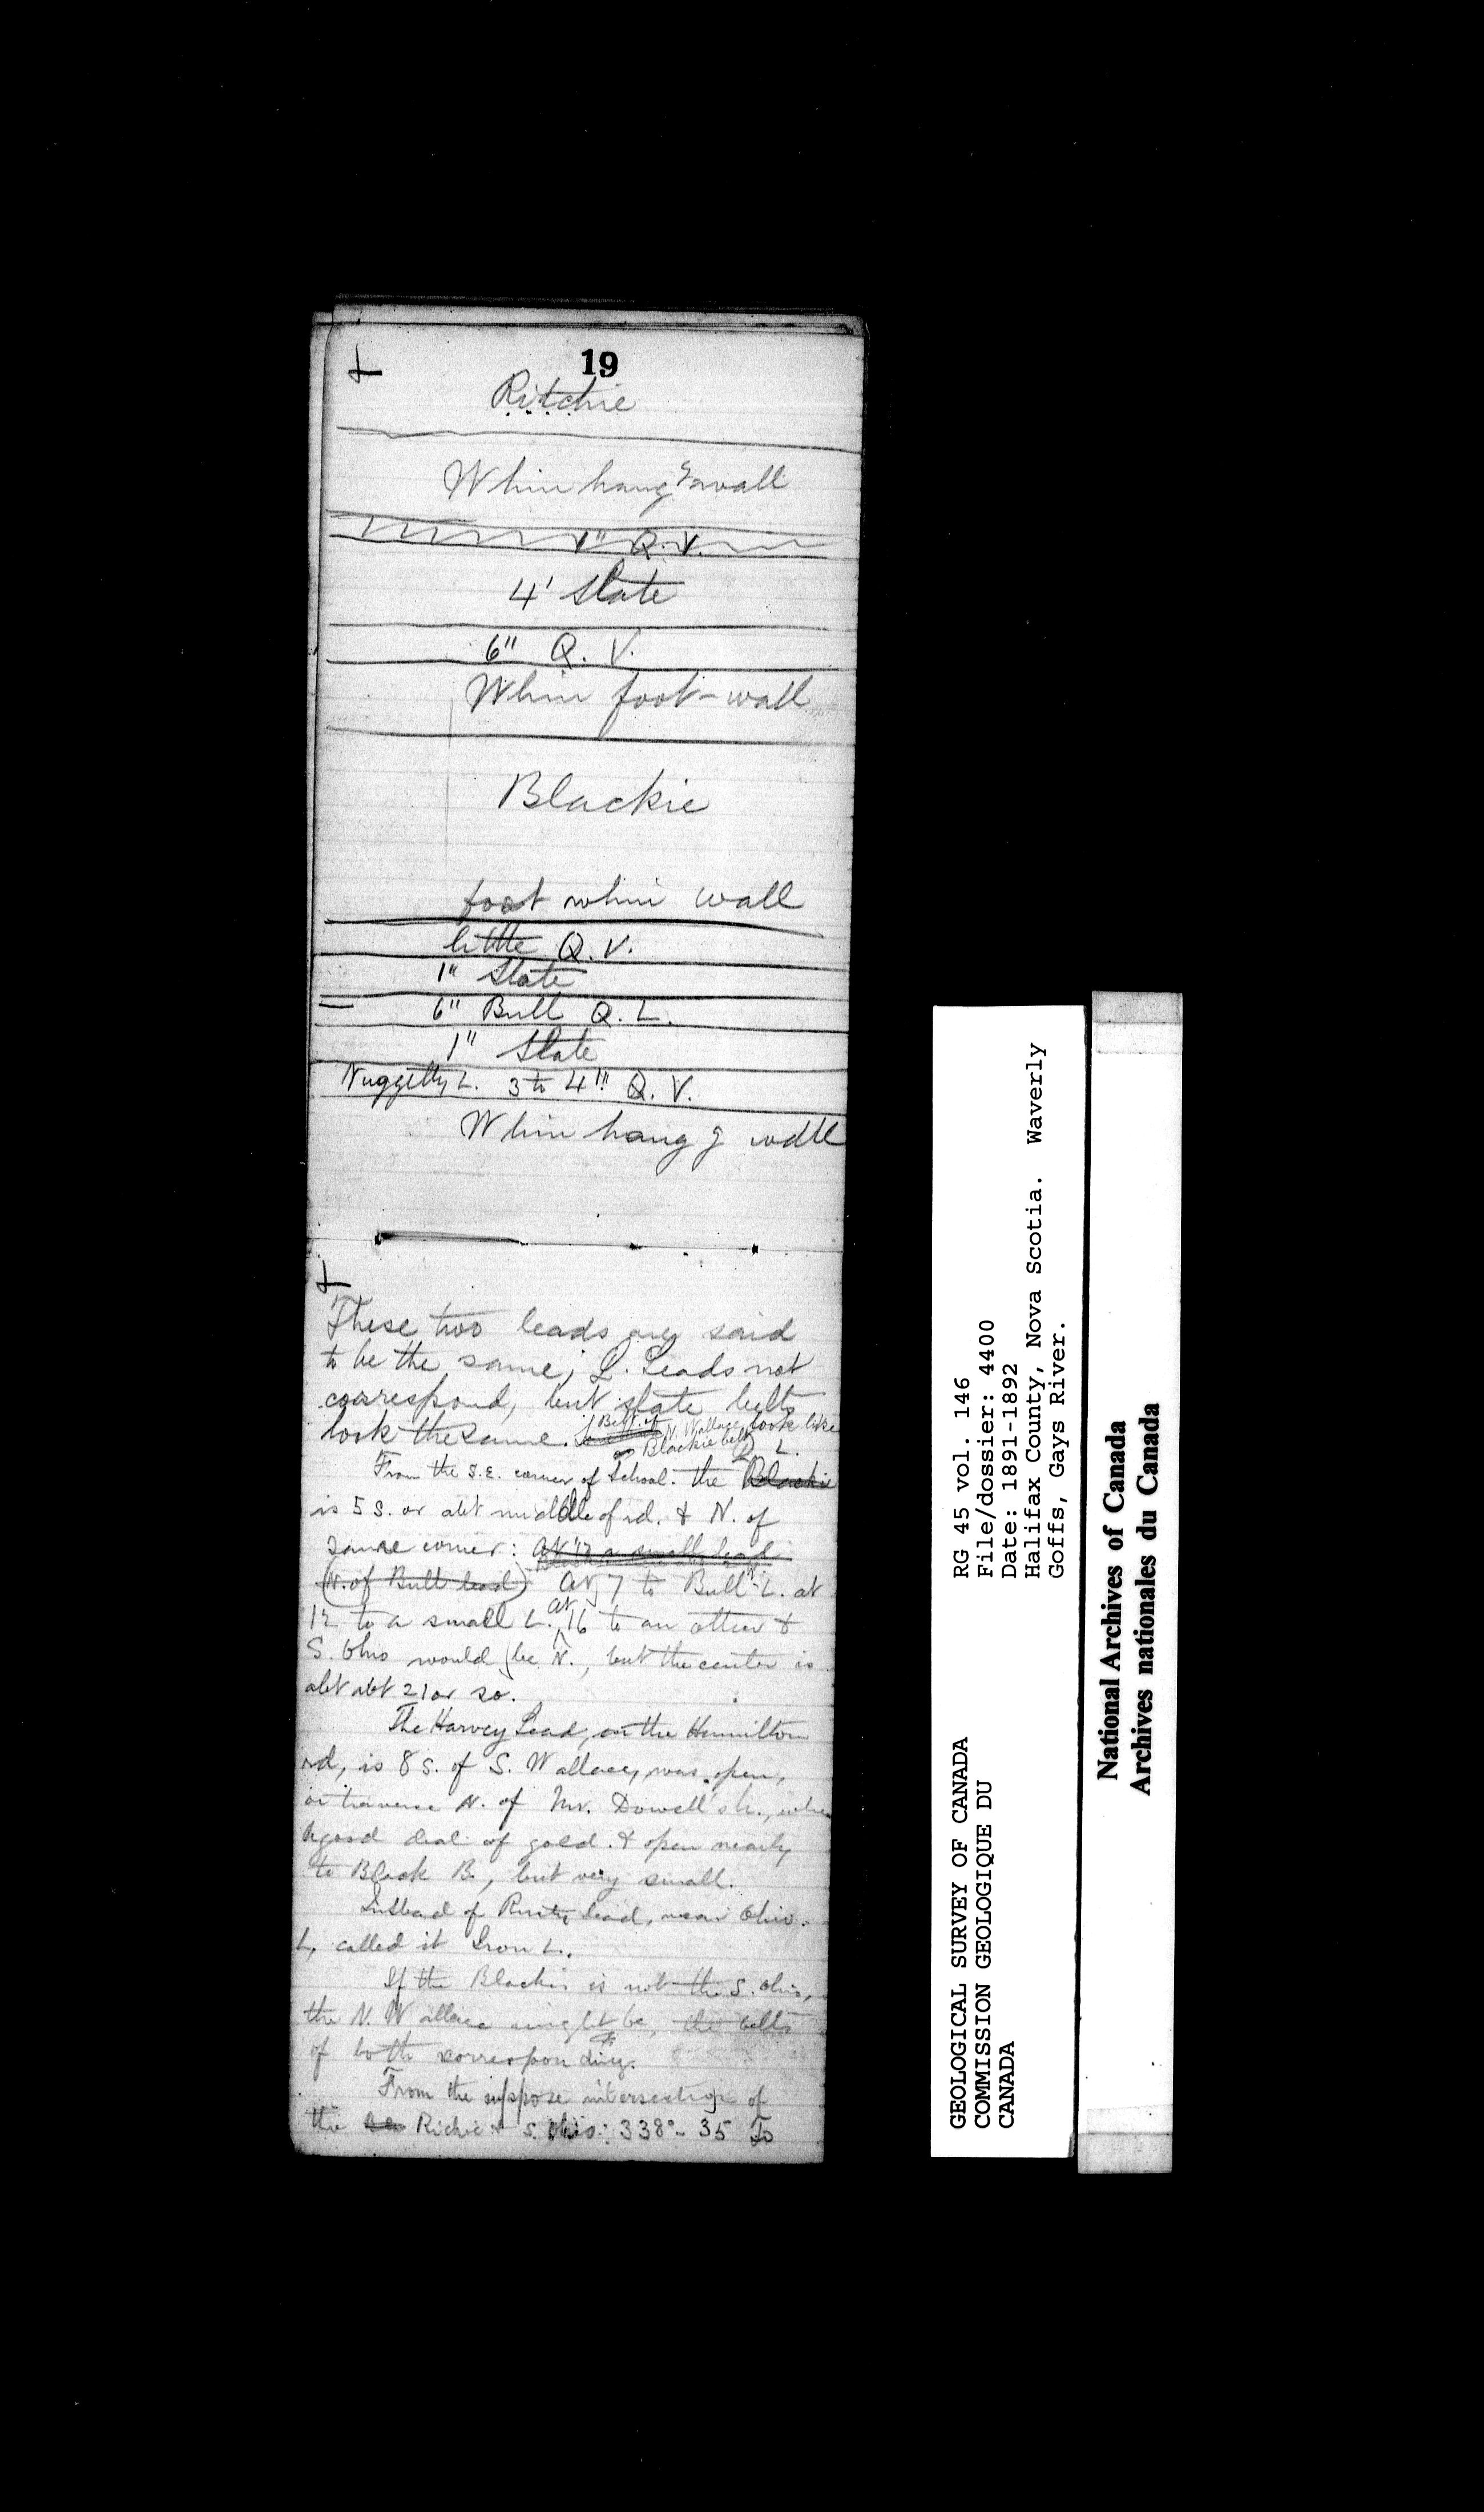 19
Ritchie
Whin hang g wall
1" Q. V.
4' Slate
6" Q. V.
Whin foot-wall
Blackie
foot whin wall
little Q. V.
1" Slate
6" Bull Q. L.
1" Slate
Nuggetty L. 3 to 4" Q. V.
Whin hang g wall
These two leads are said
to be the same; Q. Leads not
correspond, but slate belts
look the same. Belt of N. Wallace look like
Blackie belt
From the S.E. corner of School. the Blackie L.
is 5 S. or abt middle of rd. & N. of
same corner: At 12 a small lead
(N. of Bull lead) At 7 to Bull L. at
12 to a small L. at 16 to an other &
S. Ohio would be N., but the center is
abt abt 21 or so.
The Harvey Lead, on the Hamilton
rd, is 8 S. of S. Wallace, was open,
on traverse N. of Mr. Dowell's h., where
a good deal of gold. & open nearly
to Black B., but very small.
Instead of Rusty lead, near Ohio
L, called it Iron L.
If the Blackie is not the S. Ohio,
the N. Wallace might be, the belts
of both corresponding.
From the suppose intersection of
the Richie & S. Ohio: 338° - 35 To
RG 45 vol. 146
File/dossier: 4400
Date: 1891-1892
Halifax County, Nova Scotia. Waverly
Goffs, Gays River.
GEOLOGICAL SURVEY OF CANADA
COMMISSION GEOLOGIQUE DU
CANADA
National Archives of Canada
Archives nationales du Canada